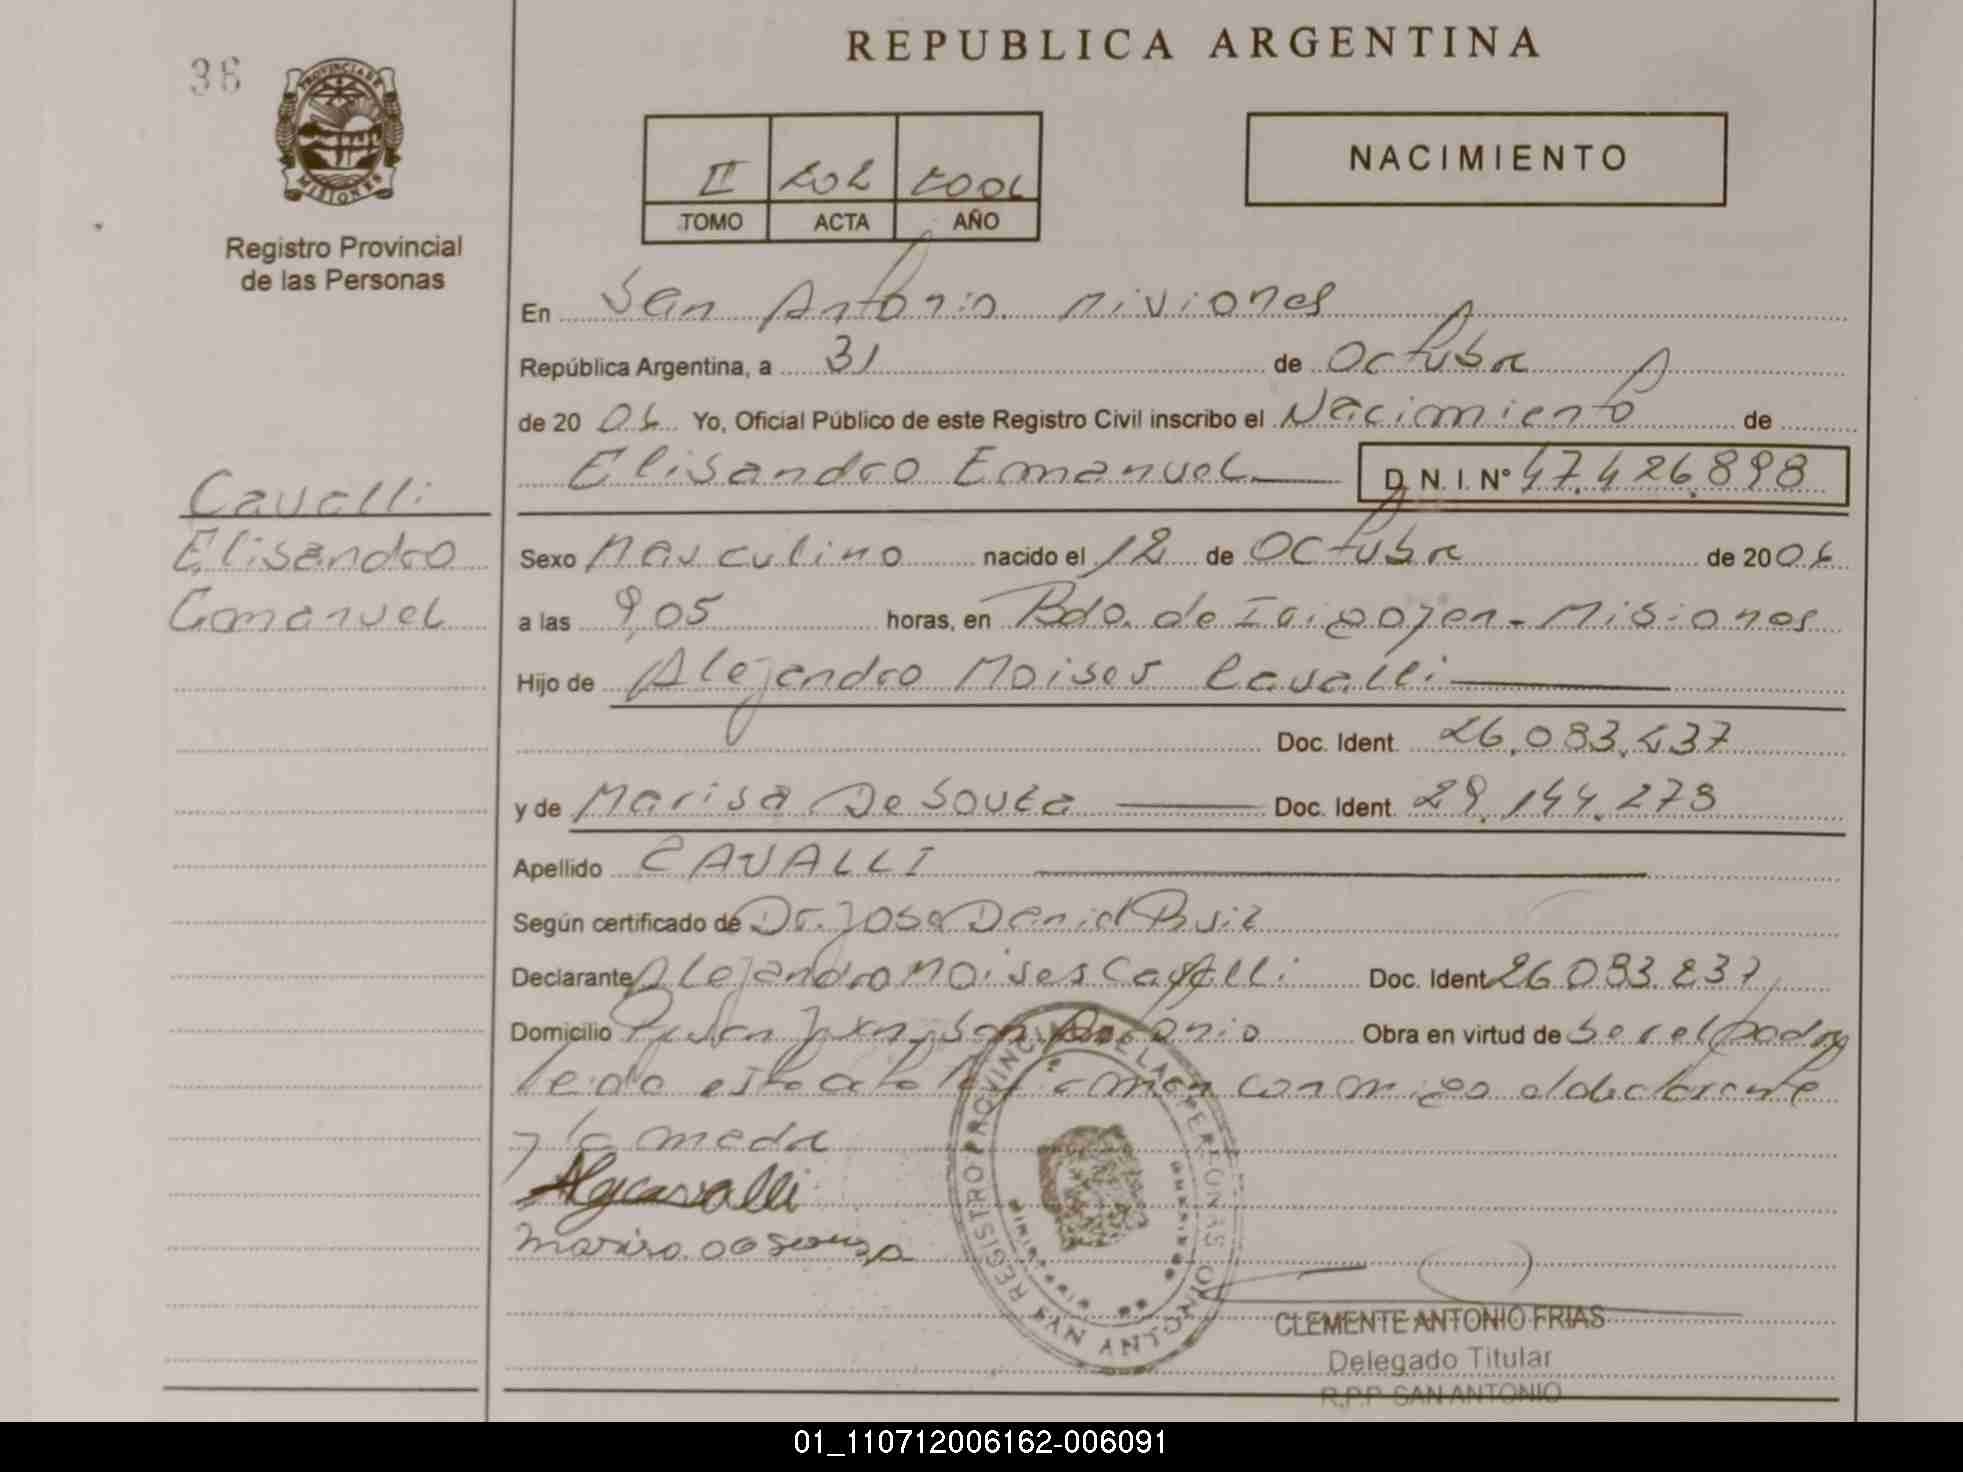 REPUBLICA ARGENTINA
36
PROVINCIA DE
MISIONES
Registro Provincial
de las Personas
NACIMIENTO
II 202 2006
TOMO ACTA AÑO
En San Antonio Misiones
República Argentina, a 31 de Octubre
de 20 06 Yo, Oficial Público de este Registro Civil inscribo el Nacimiento de
Elisandro Emanuel D. N. I. Nº 47.426.898
Cavalli
Elisandro
Emanuel
Sexo Masculino nacido el 12 de Octubre de 2006
a las 9,05 horas, en Bdo. de Irigoyen - Misiones
Hijo de Alejandro Moises Cavalli
Doc. Ident. 26.083.237
y de Marisa De Souza Doc. Ident. 29.144.278
Apellido CAVALLI
Según certificado de Dr. Jose Daniel Ruiz
Declarante Alejandro Moises Cavalli Doc. Ident 26.083.237
Domicilio San Antonio Obra en virtud de Ser el padre
leido esta acta la firman conmigo el declarante
y la madre
Alejcavalli
Marisa de Souza
REGISTRO PROVINCIAL DE LAS PERSONAS
SAN ANTONIO
CLEMENTE ANTONIO FRIAS
Delegado Titular
R.P.P SAN ANTONIO
01_110712006162-006091